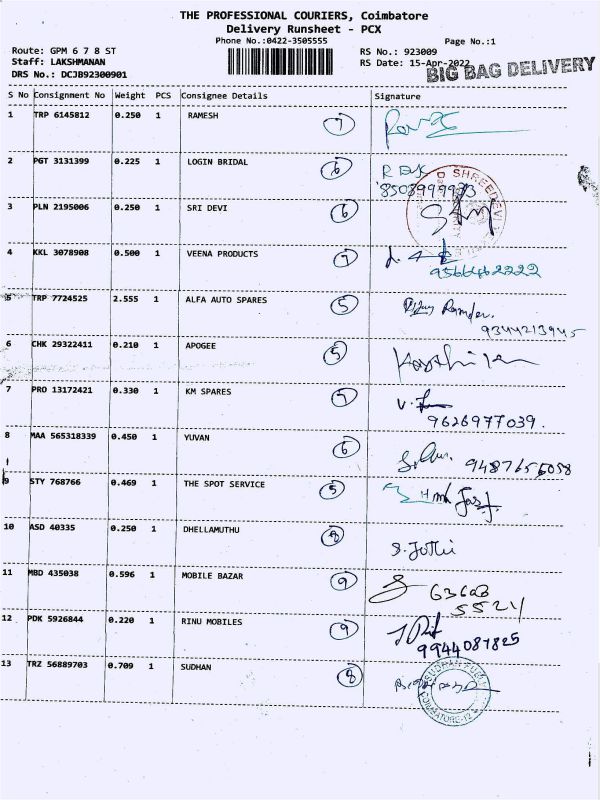 THE PROFESSIONAL COURIERS, Coimbatore
Delivery Runsheet - PCX
Phone No.:0422-3505555
Page No.:1
Route: GPM 6 7 8 ST
RS No.: 923009
Staff: LAKSHMANAN
RS Date: 15-Apr-2022
DRS No.: DCJB92300901
BIG BAG DELIVERY
S No Consignment No Weight PCS Consignee Details Signature
1 TRP 6145812 0.250 1 RAMESH 7
2 PGT 3131399 0.225 1 LOGIN BRIDAL 6
SHREEDEVI
3 PLN 2195006 0.250 1 SRI DEVI 6
4 KKL 3078908 0.500 1 VEENA PRODUCTS 7
9566462222
5 TRP 7724525 2.555 1 ALFA AUTO SPARES 5
9344213945
6 CHK 29322411 0.210 1 APOGEE 5
7 PRO 13172421 0.330 1 KM SPARES 7
9626977039.
8 MAA 565318339 0.450 1 YUVAN 6
9 STY 768766 0.469 1 THE SPOT SERVICE 5
10 ASD 40335 0.250 1 DHELLAMUTHU 8
S. Jothi
11 MBD 435038 0.596 1 MOBILE BAZAR 9
5521
12 PDK 5926844 0.220 1 RINU MOBILES 9
9944087825
13 TRZ 56889703 0.709 1 SUDHAN 8
COIMBATORE-12